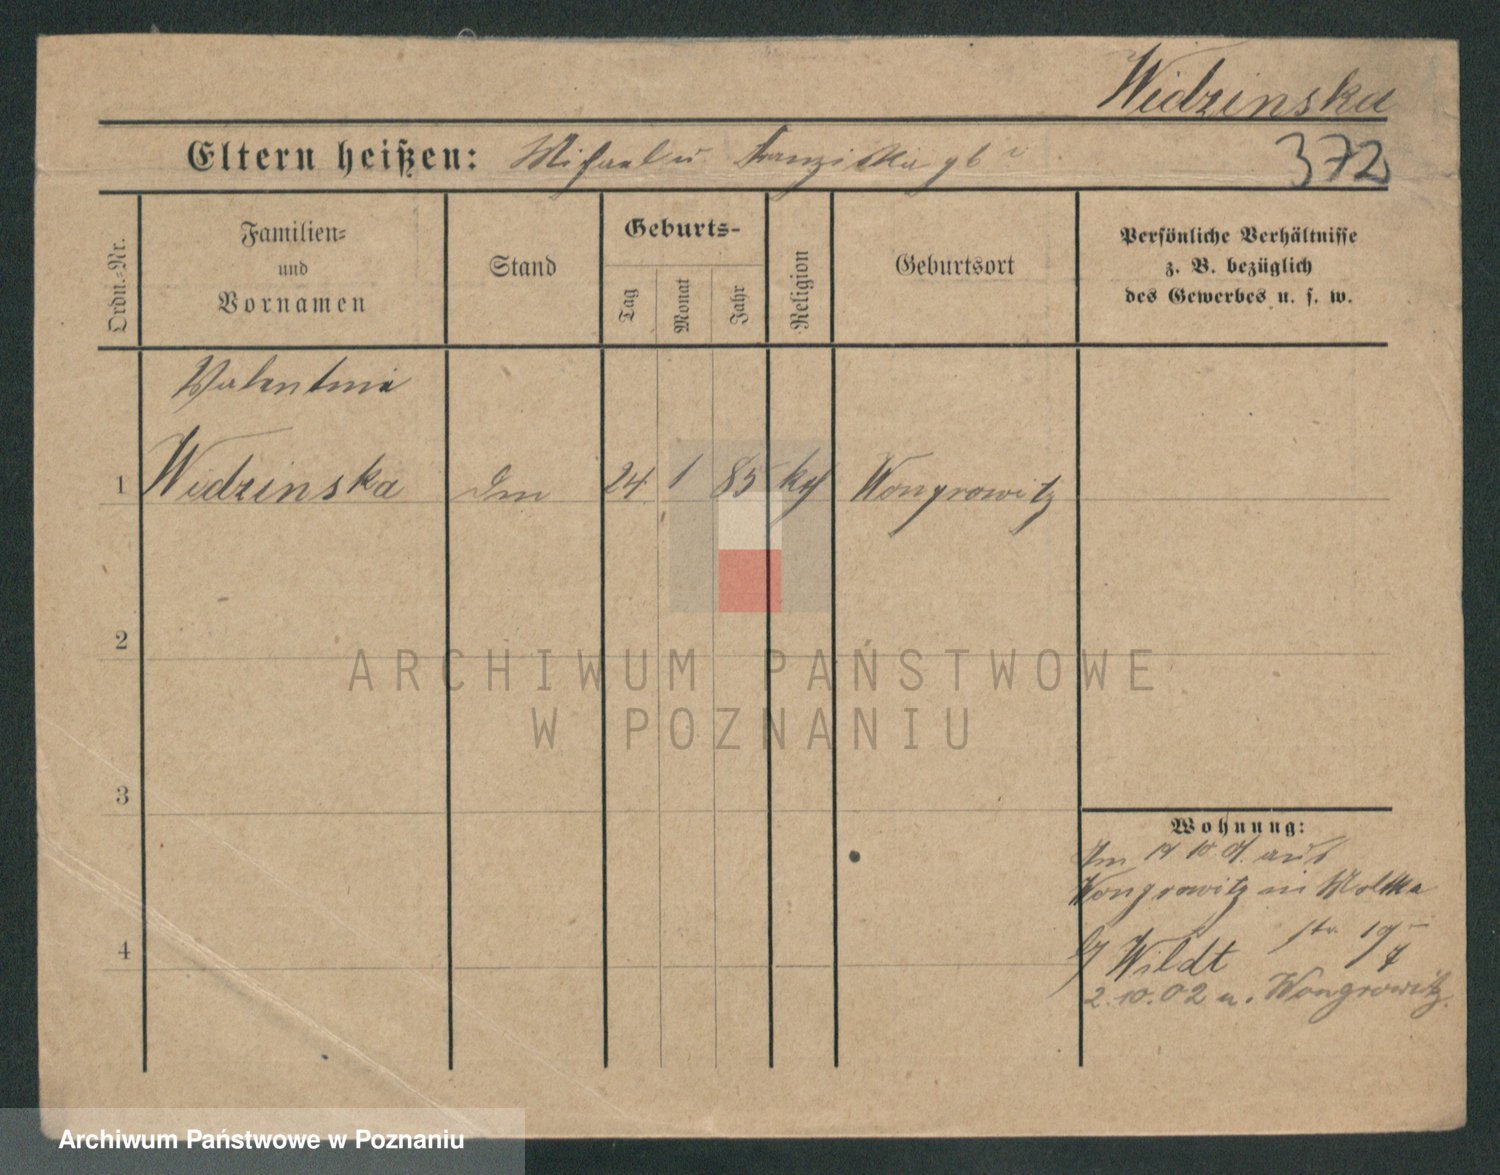 Widzinska
Eltern heißen: Michael u Franziska gb
372
Ordn.-Nr.
Familien-
und
Vornamen
Stand
Geburts-
Tag
Monat
Jahr
Religion
Geburtsort
Persönliche Verhältnisse
z. B. bezüglich
des Gewerbes u. s. w.
Valentina
1 Widzinska 24 1 85 Wongrowitz
2
3
4
Wohnung:
aus
Wongrowitz in Moltke
str. 19
Wildt
2.10.02 n. Wongrowitz
ARCHIWUM PAŃSTWOWE
W POZNANIU
Archiwum Państwowe w Poznaniu